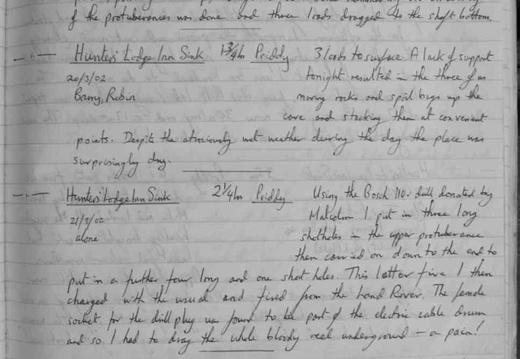 of the protuberances was done and three loads dragged to the shaft bottom.
Hunters' Lodge Inn Sink 1¾hr Priddy 3 loads to surface. A lack of support
20/3/02 tonight resulted in the three of us
Barry, Robin moving rocks and spoil bags up the
cave and stacking them at convenient
points. Despite the atrociously wet weather during the day the place was
surprisingly dry.
Hunters' Lodge Inn Sink 2¼hr Priddy Using the Bosch 110v drill donated by
21/3/02 Malcolm I put in three long
alone shotholes in the upper protuberance
then carried on down to the end to
put in a further four long and one short holes. This latter five I then
charged with the usual and fired from the Land Rover. The female
socket for the drill plug was found to be part of the electric cable drum
and so I had to drag the whole bloody reel underground - a pain!